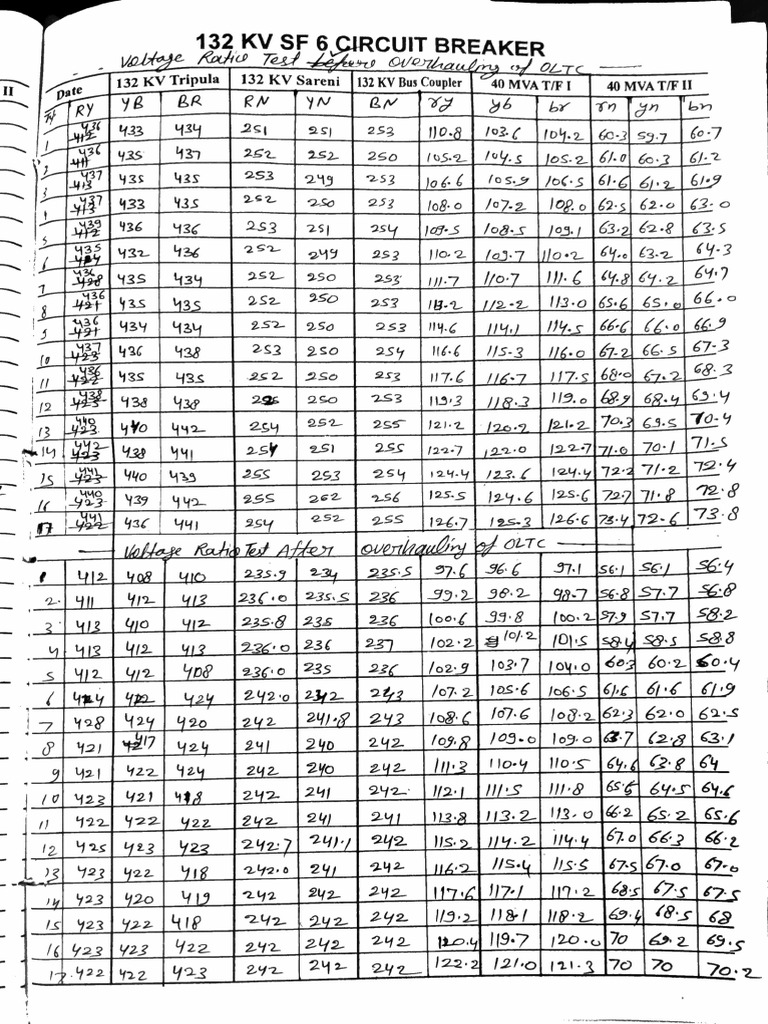 132 KV SF 6 CIRCUIT BREAKER
Voltage Ratio Test before overhauling of OLTC
II Date 132 KV Tripula 132 KV Sareni 132 KV Bus Coupler 40 MVA T/F I 40 MVA T/F II
RY YB BR RN YN BN ry yb br rn yn bn
1 436 412 433 434 251 251 253 110.8 103.6 104.2 60.3 59.7 60.7
2 436 411 435 437 252 252 250 105.2 104.5 105.2 61.0 60.3 61.2
3 437 413 435 435 253 249 253 106.6 105.9 106.5 61.6 61.2 61.9
4 437 413 433 435 252 250 253 108.0 107.2 108.0 62.5 62.0 63.0
5 439 412 436 436 253 251 254 109.5 108.5 109.1 63.2 62.8 63.5
6 435 424 432 436 252 249 253 110.2 109.7 110.2 64.0 63.2 64.3
7 436 428 435 434 252 250 253 111.7 110.7 111.6 64.8 64.2 64.7
8 436 421 435 435 252 250 253 113.2 112.2 113.0 65.6 65.0 66.0
9 436 421 434 434 252 250 253 114.6 114.1 114.5 66.6 66.0 66.9
10 437 423 436 438 253 250 254 116.6 115.3 116.0 67.2 66.5 67.3
11 436 422 435 435 252 250 253 117.6 116.7 117.5 68.0 67.2 68.3
12 438 425 438 438 250 253 119.3 118.3 119.0 68.9 68.4 69.4
13 440 423 440 442 254 252 255 121.2 120.2 121.2 70.3 69.5 70.4
14 442 423 438 441 254 251 255 122.7 122.0 122.7 71.0 70.1 71.5
15 441 423 440 439 255 253 254 124.4 123.6 124.4 72.2 71.2 72.4
16 440 423 439 442 255 262 256 125.5 124.6 125.6 72.7 71.8 72.8
17 441 422 436 441 254 252 255 126.7 125.3 126.6 73.4 72.6 73.8
Voltage Ratio Test After overhauling of OLTC
1 412 408 410 235.9 234 235.5 97.6 96.6 97.1 56.1 56.1 56.4
2 411 412 413 236.0 235.5 236 99.2 98.2 98.7 56.8 57.7 56.8
3 413 410 412 235.8 235 236 100.6 99.8 100.2 57.9 57.7 58.2
4 413 412 413 236.0 236 237 102.2 101.2 101.5 58.4 58.5 58.8
5 412 412 408 236.0 235 236 102.9 103.7 104.0 60.3 60.2 60.4
6 424 422 424 242.0 242 243 107.2 105.6 106.5 61.6 61.6 61.9
7 428 424 420 242 241.8 243 108.6 107.6 108.2 62.3 62.0 62.5
8 421 417 424 241 240 242 109.8 109.0 109.0 63.7 62.8 63.1
9 421 422 424 242 240 242 111.3 110.4 110.5 64.6 63.8 64
10 423 421 418 242 241 242 112.1 111.5 111.8 65.6 64.5 64.6
11 422 422 422 242 241 241 113.8 113.2 113.0 66.2 65.2 65.6
12 425 423 423 242.7 241.1 242 115.2 114.2 114.4 67.0 66.3 66.2
13 423 422 418 242.0 241 242 116.2 115.4 115.5 67.5 67.0 67.0
14 423 420 419 242 242 242 117.6 117.1 117.2 68.5 67.5 67.5
15 423 422 418 242 242 242 119.2 118.1 118.2 69.4 68.5 68
16 423 423 422 242 242 242 120.4 119.7 120.0 70 69.2 69.5
17 422 422 423 242 242 242 122.2 121.0 121.3 70 70 70.2